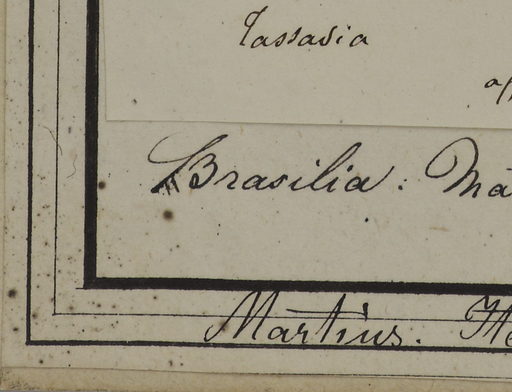 Tassadia
Brasilia: Má
Martius. He